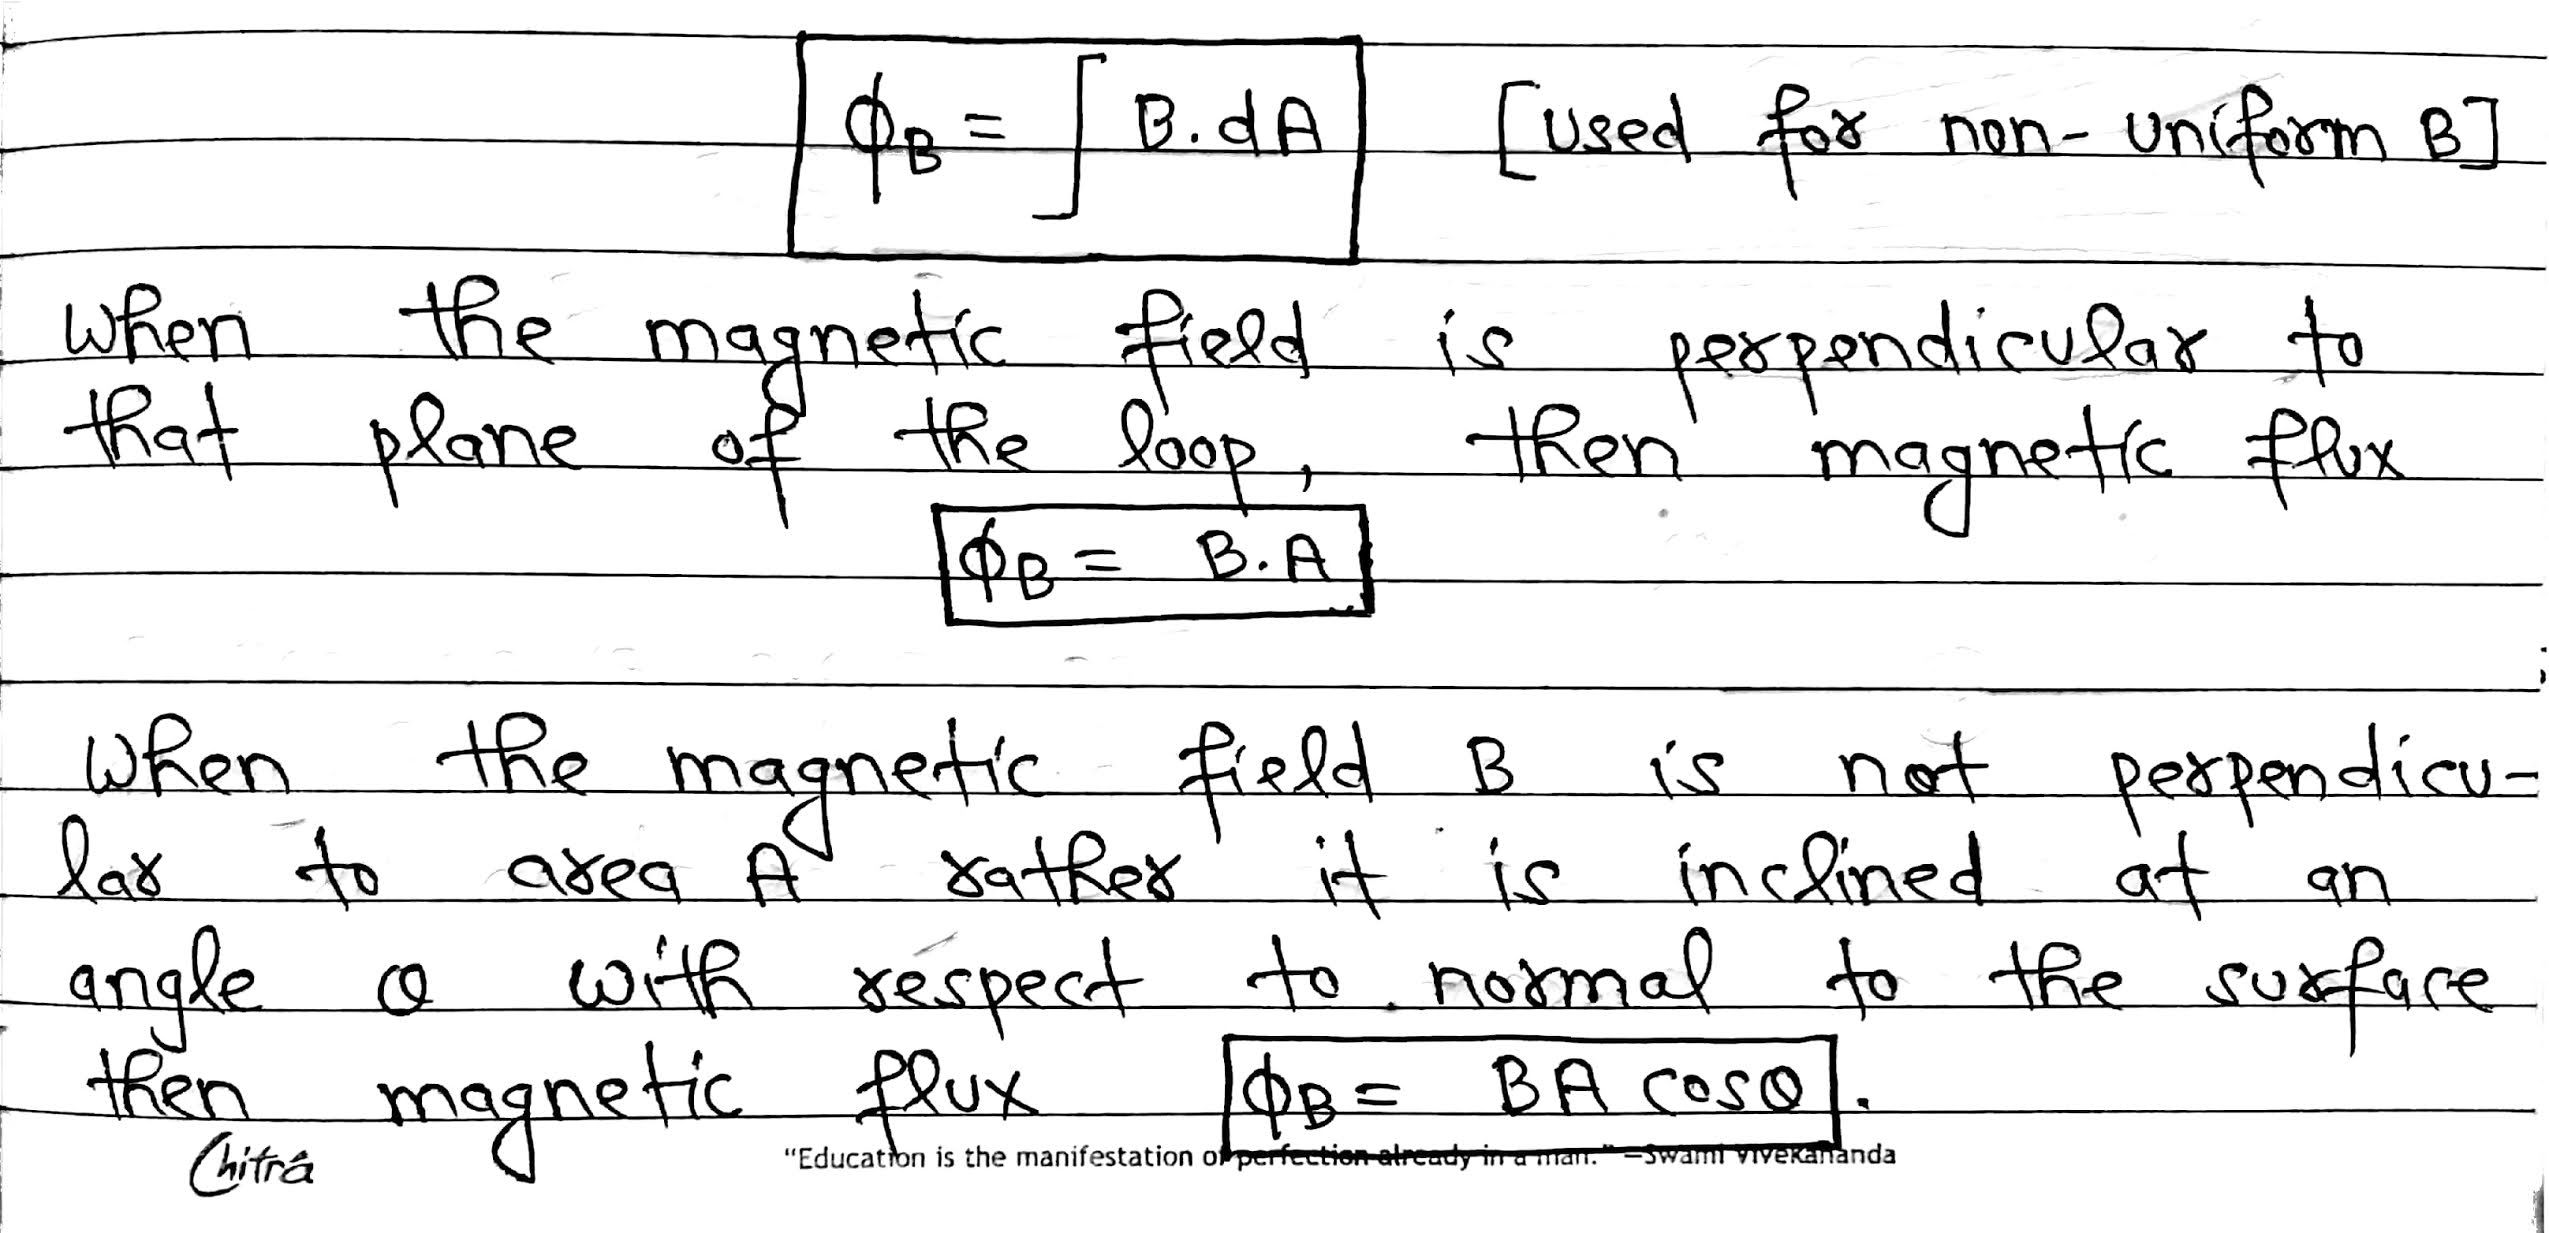 ϕB = ∫ B.dA [used for non-uniform B]
When the magnetic field is perpendicular to
that plane of the loop, then magnetic flux
ϕB = B.A
When the magnetic field B is not perpendicu-
lar to area A rather it is inclined at an
angle θ with respect to normal to the surface
then magnetic flux ϕB = BA cosθ.
Chitra "Education is the manifestation of perfection already in a man." —Swami Vivekananda